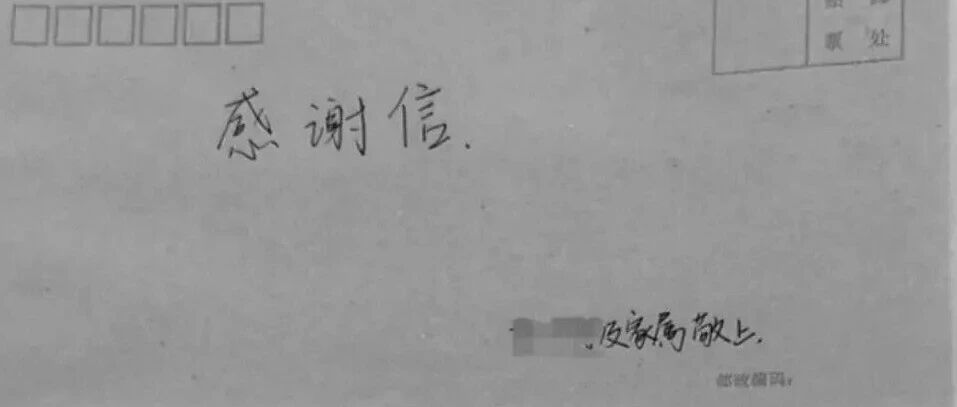 票 处
感谢信.
及家属敬上.
邮政编码: